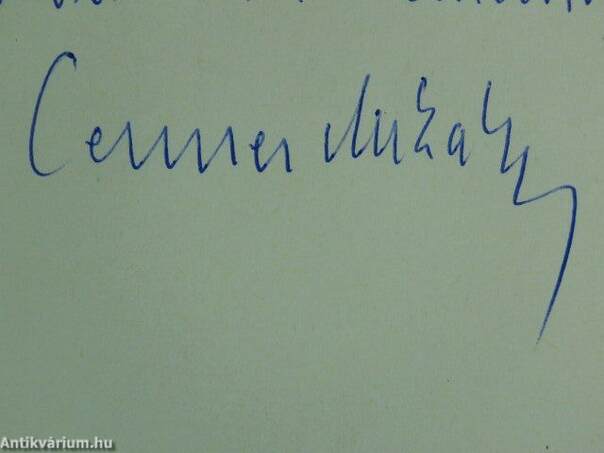 Cenner Mihály
Antikvárium.hu